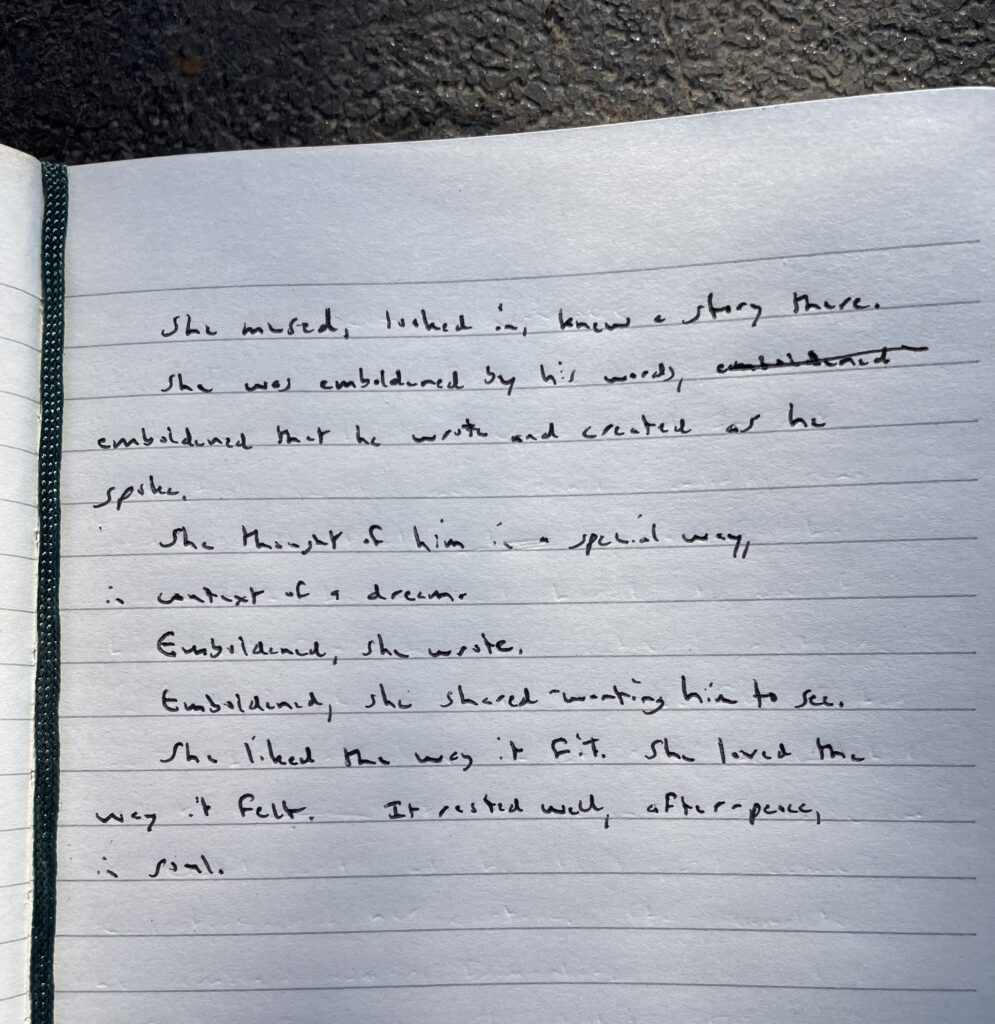 She mused, looked in, knew a story there.
She was emboldened by his words, emboldened
emboldened that he wrote and created as he
spoke.
She thought of him in a special way,
in context of a dream.
Emboldened, she wrote.
Emboldened, she shared - wanting him to see.
She liked the way it fit. She loved the
way it felt. It rested well, after-peace,
in soul.